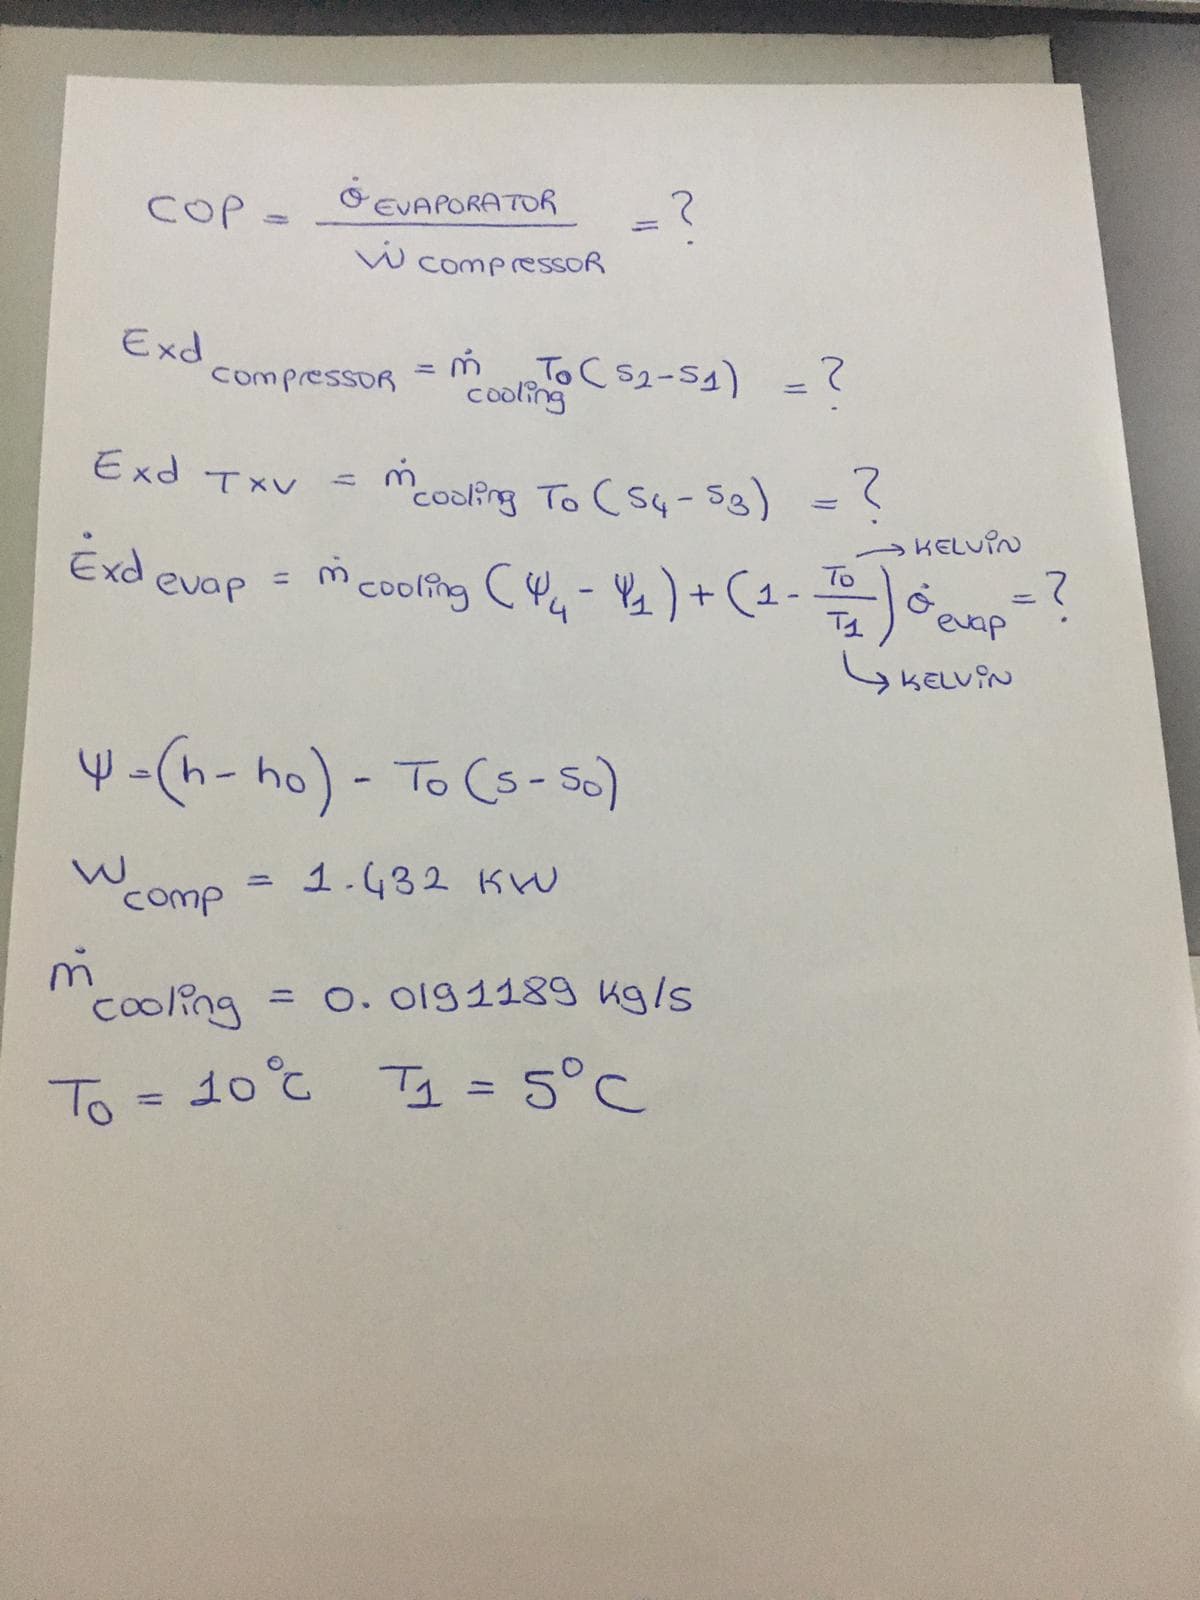 COP = Q̇ EVAPORATOR / Ẇ compressor = ?
Exd compressor = ṁ cooling To (s2-s1) = ?
Exd TXV = ṁ cooling To (s4-s3) = ?
Ėxd evap = ṁ cooling (Ψ4 - Ψ1) + (1 - To/T1) Q̇ evap = ?
→ KELVİN
↳ KELVİN
Ψ = (h - ho) - To (s - so)
W comp = 1.432 KW
ṁ cooling = 0.0191189 kg/s
To = 10°C T1 = 5°C